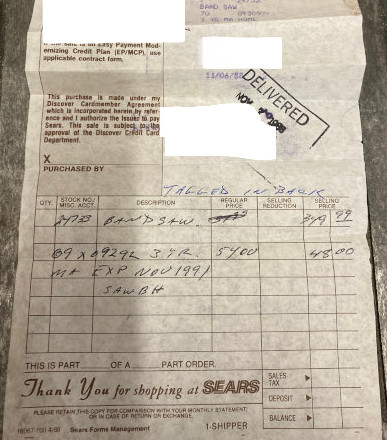 BAND SAW
If the sale is on Easy Payment Mod-
ernizing Credit Plan (EP/MCP), use
applicable contract form.
11/06/88
DELIVERED
This purchase is made under my
Discover Cardmember Agreement
which is incorporated herein by refer-
ence and I authorize the Issuer to pay
Sears. This sale is subject to the
approval of the Discover Credit Card
Department.
X
PURCHASED BY
TAGGED IN BACK
QTY. STOCK NO./ MISC. ACCT. DESCRIPTION REGULAR PRICE SELLING REDUCTION SELLING PRICE
24733 BAND SAW 349 99
69 x 09292 3 YR. 5400 48 00
MA EXP NOV 1991
SAWBH
THIS IS PART OF A PART ORDER.
Thank You for shopping at SEARS
SALES TAX
DEPOSIT
BALANCE
PLEASE RETAIN THIS COPY FOR COMPARISON WITH YOUR MONTHLY STATEMENT
OR IN CASE OF RETURN OR EXCHANGE.
Sears Forms Management 1-SHIPPER